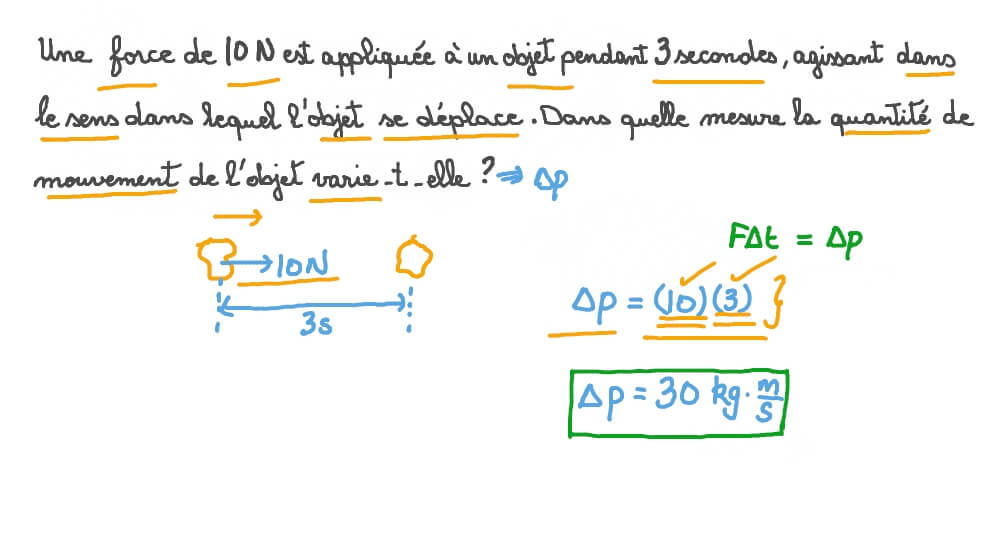 Une force de 10 N est appliquée à un objet pendant 3 secondes, agissant dans
le sens dans lequel l'objet se déplace. Dans quelle mesure la quantité de
mouvement de l'objet varie-t-elle ? ⇒ Δp
FΔt = Δp
10N
Δp = (10)(3)
3s
Δp = 30 kg·m/s